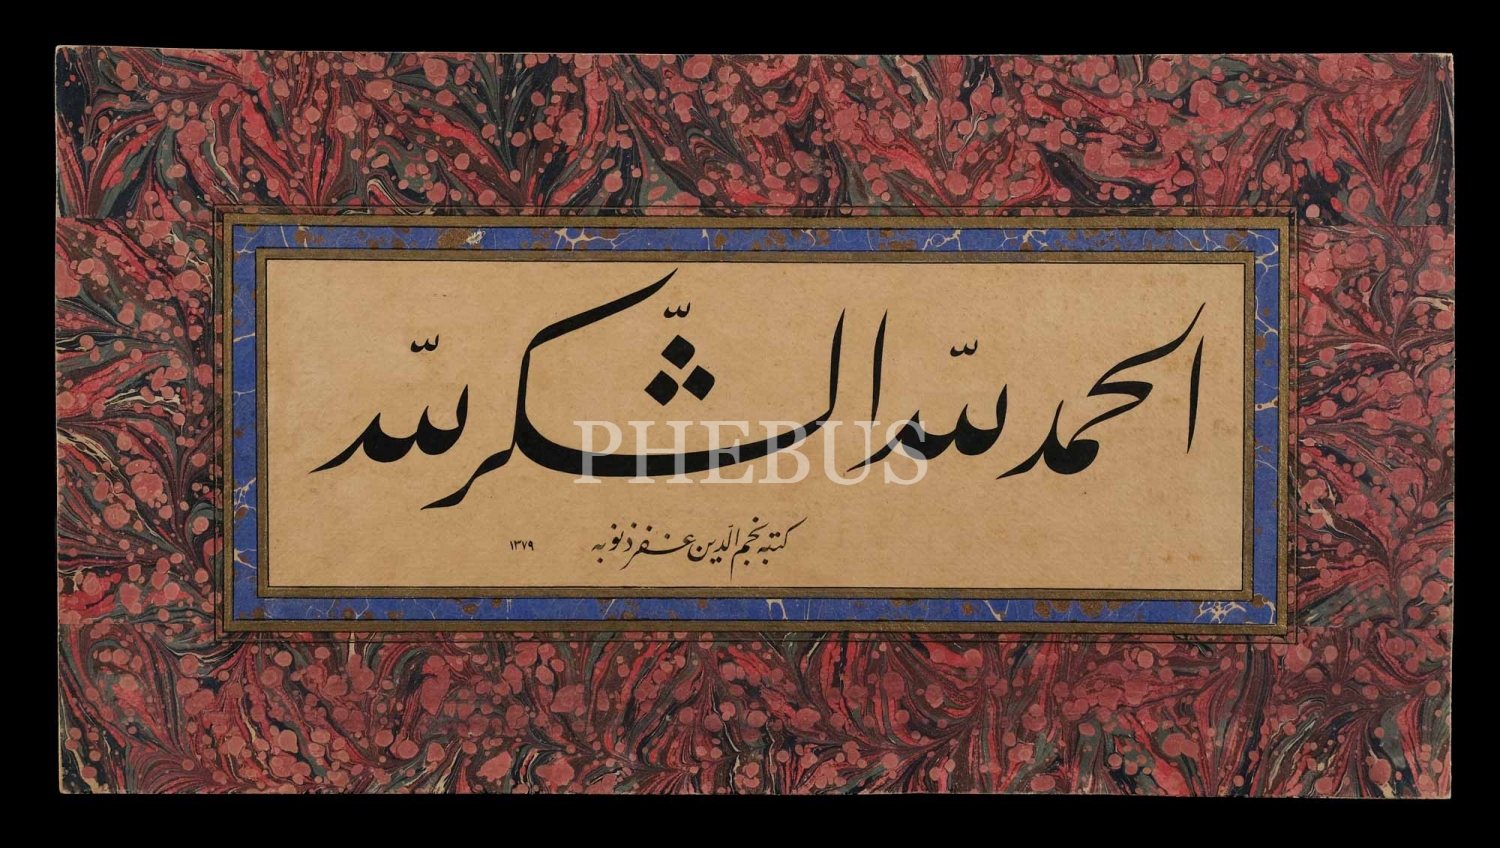 الحمد لله الشكر لله
كتبه نجم الدين غفر ذنوبه ١٣٧٩
PHEBUS